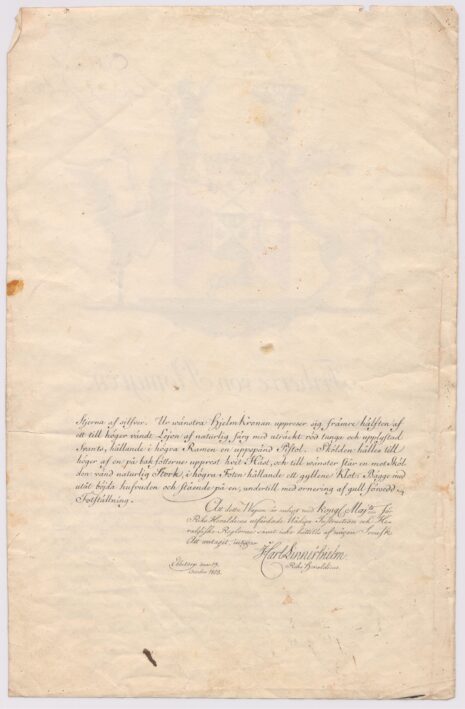 Stjerna af silfver. Ur wänstra Hjelmkronan uppreser sig främre hälften af
ett till höger vändt Lejon af naturlig färg med utsträckt röd tunga och upplyftad
Svants, hållande i högra Ramen en uppspänd Pistol. Skölden hålles till
höger af en på bak fötterne upprest hvit Häst, och till wänster står en mot Sköl
den vänd naturlig Stork, i högra Foten hållande ett gyllene Klot; Bägge med
utåt böjda hufvuden och stående på en, undertill med ornering af guld försedd
Fotställning.
Att detta Wapen är enligt med Kongl Maj:ts för
Riks Heraldicus utfärdade Nådiga Instruction och He-
raldiske Reglorne samt icke tillhör af någon Svensk
Ätt antaget, intygar
Carl Linnerhielm
Riks Heraldicus.
den 19
October 1823.